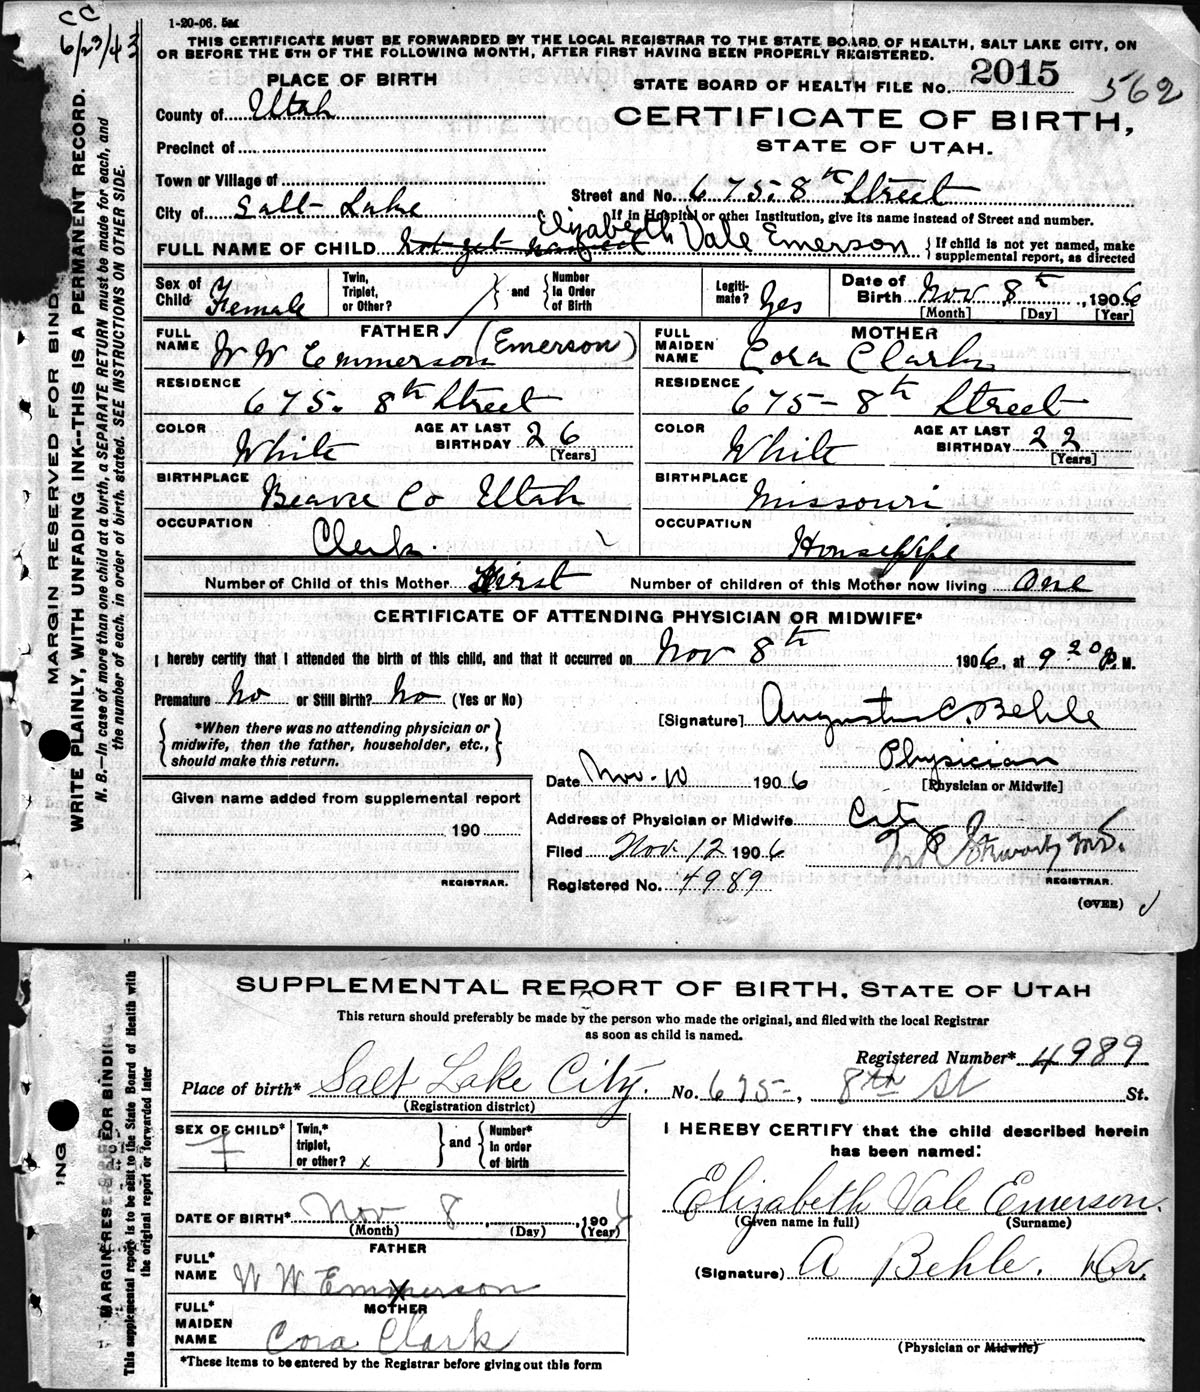 CC
6/23/43
1-20-06. 5M
THIS CERTIFICATE MUST BE FORWARDED BY THE LOCAL REGISTRAR TO THE STATE BOARD OF HEALTH, SALT LAKE CITY, ON
OR BEFORE THE 5TH OF THE FOLLOWING MONTH, AFTER FIRST HAVING BEEN PROPERLY REGISTERED.
PLACE OF BIRTH
STATE BOARD OF HEALTH FILE No. 2015
562
County of Utah
CERTIFICATE OF BIRTH,
Precinct of
STATE OF UTAH.
Town or Village of
Street and No. 675-8th Street
City of Salt Lake
If in Hospital or other Institution, give its name instead of Street and number.
FULL NAME OF CHILD Not yet named Elizabeth Vale Emerson { If child is not yet named, make supplemental report, as directed
Sex of Child Female
Twin, Triplet, or Other? } and { Number In Order of Birth
Legiti-mate? Yes
Date of Birth Nov 8th, 1906
[Month] [Day] [Year]
FATHER
FULL NAME W W Emmerson (Emerson)
MOTHER
FULL MAIDEN NAME Cora Clark
RESIDENCE 675. 8th Street
RESIDENCE 675-8th Street
COLOR White AGE AT LAST BIRTHDAY 26 [Years]
COLOR White AGE AT LAST BIRTHDAY 22 [Years]
BIRTHPLACE Beaver Co Utah
BIRTHPLACE Missouri
OCCUPATION Clerk.
OCCUPATION Housewife
Number of Child of this Mother First Number of children of this Mother now living One
CERTIFICATE OF ATTENDING PHYSICIAN OR MIDWIFE*
I hereby certify that I attended the birth of this child, and that it occurred on Nov 8th 1906, at 9 20 P. M.
Premature No or Still Birth? No (Yes or No)
[Signature] Augustus C. Behle
{ *When there was no attending physician or midwife, then the father, householder, etc., should make this return. }
Physician
[Physician or Midwife]
Date Nov. 10 1906
Given name added from supplemental report
190
REGISTRAR.
Address of Physician or Midwife City
Filed Nov. 12 1906
REGISTRAR.
Registered No. 4989
(OVER)
MARGIN RESERVED FOR BIND
WRITE PLAINLY, WITH UNFADING INK--THIS IS A PERMANENT RECORD.
N. B.—In case of more than one child at a birth, a SEPARATE RETURN must be made for each, and
the number of each, in order of birth stated. SEE INSTRUCTIONS ON OTHER SIDE.
SUPPLEMENTAL REPORT OF BIRTH, STATE OF UTAH
This return should preferably be made by the person who made the original, and filed with the local Registrar
as soon as child is named.
Registered Number* 4989
Place of birth* Salt Lake City. No. 675-, 8th St St.
(Registration district)
SEX OF CHILD* F
Twin,* triplet, or other? x } and { Number* In order of birth
I HEREBY CERTIFY that the child described herein
has been named:
Elizabeth Vale Emerson.
(Given name in full) (Surname)
DATE OF BIRTH* Nov 8, 190
(Month) (Day) (Year)
FATHER
FULL* NAME W W Emmerson
(Signature) A Behle. Dr.
MOTHER
FULL* MAIDEN NAME Cora Clark
(Physician or Midwife)
*These items to be entered by the Registrar before giving out this form
ING
MARGIN RESERVED FOR BINDING
This supplemental report is to be sent to the State Board of Health with
the original report or forwarded later